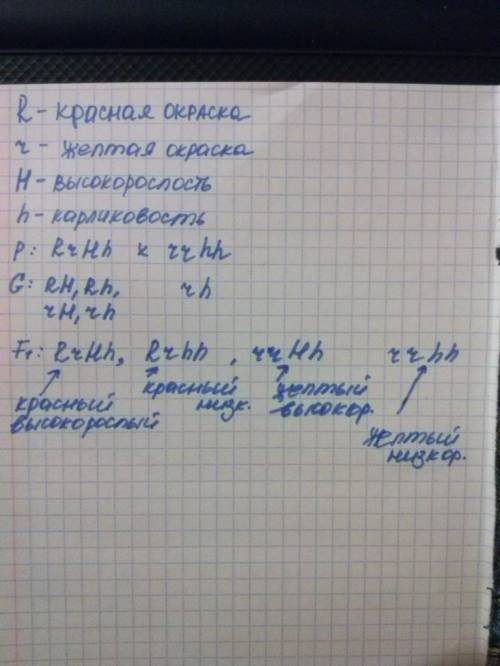 R - красная окраска
r - желтая окраска
H - высокорослость
h - карликовость
P: RrHh x rrhh
G: RH, Rh, rh
rH, rh
F₁: RrHh, Rrhh, rrHh rrhh
красный высокорослый
красный низк.
желтый высокор.
желтый низкор.